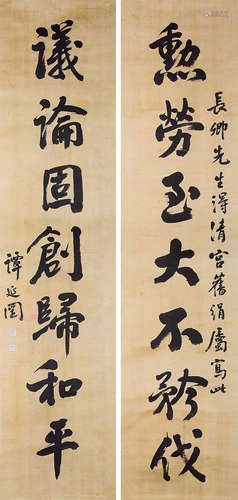 勲勞至大不矜伐
長卿先生得清宮舊絹屬寫此
議論固創歸和平
譚延闓